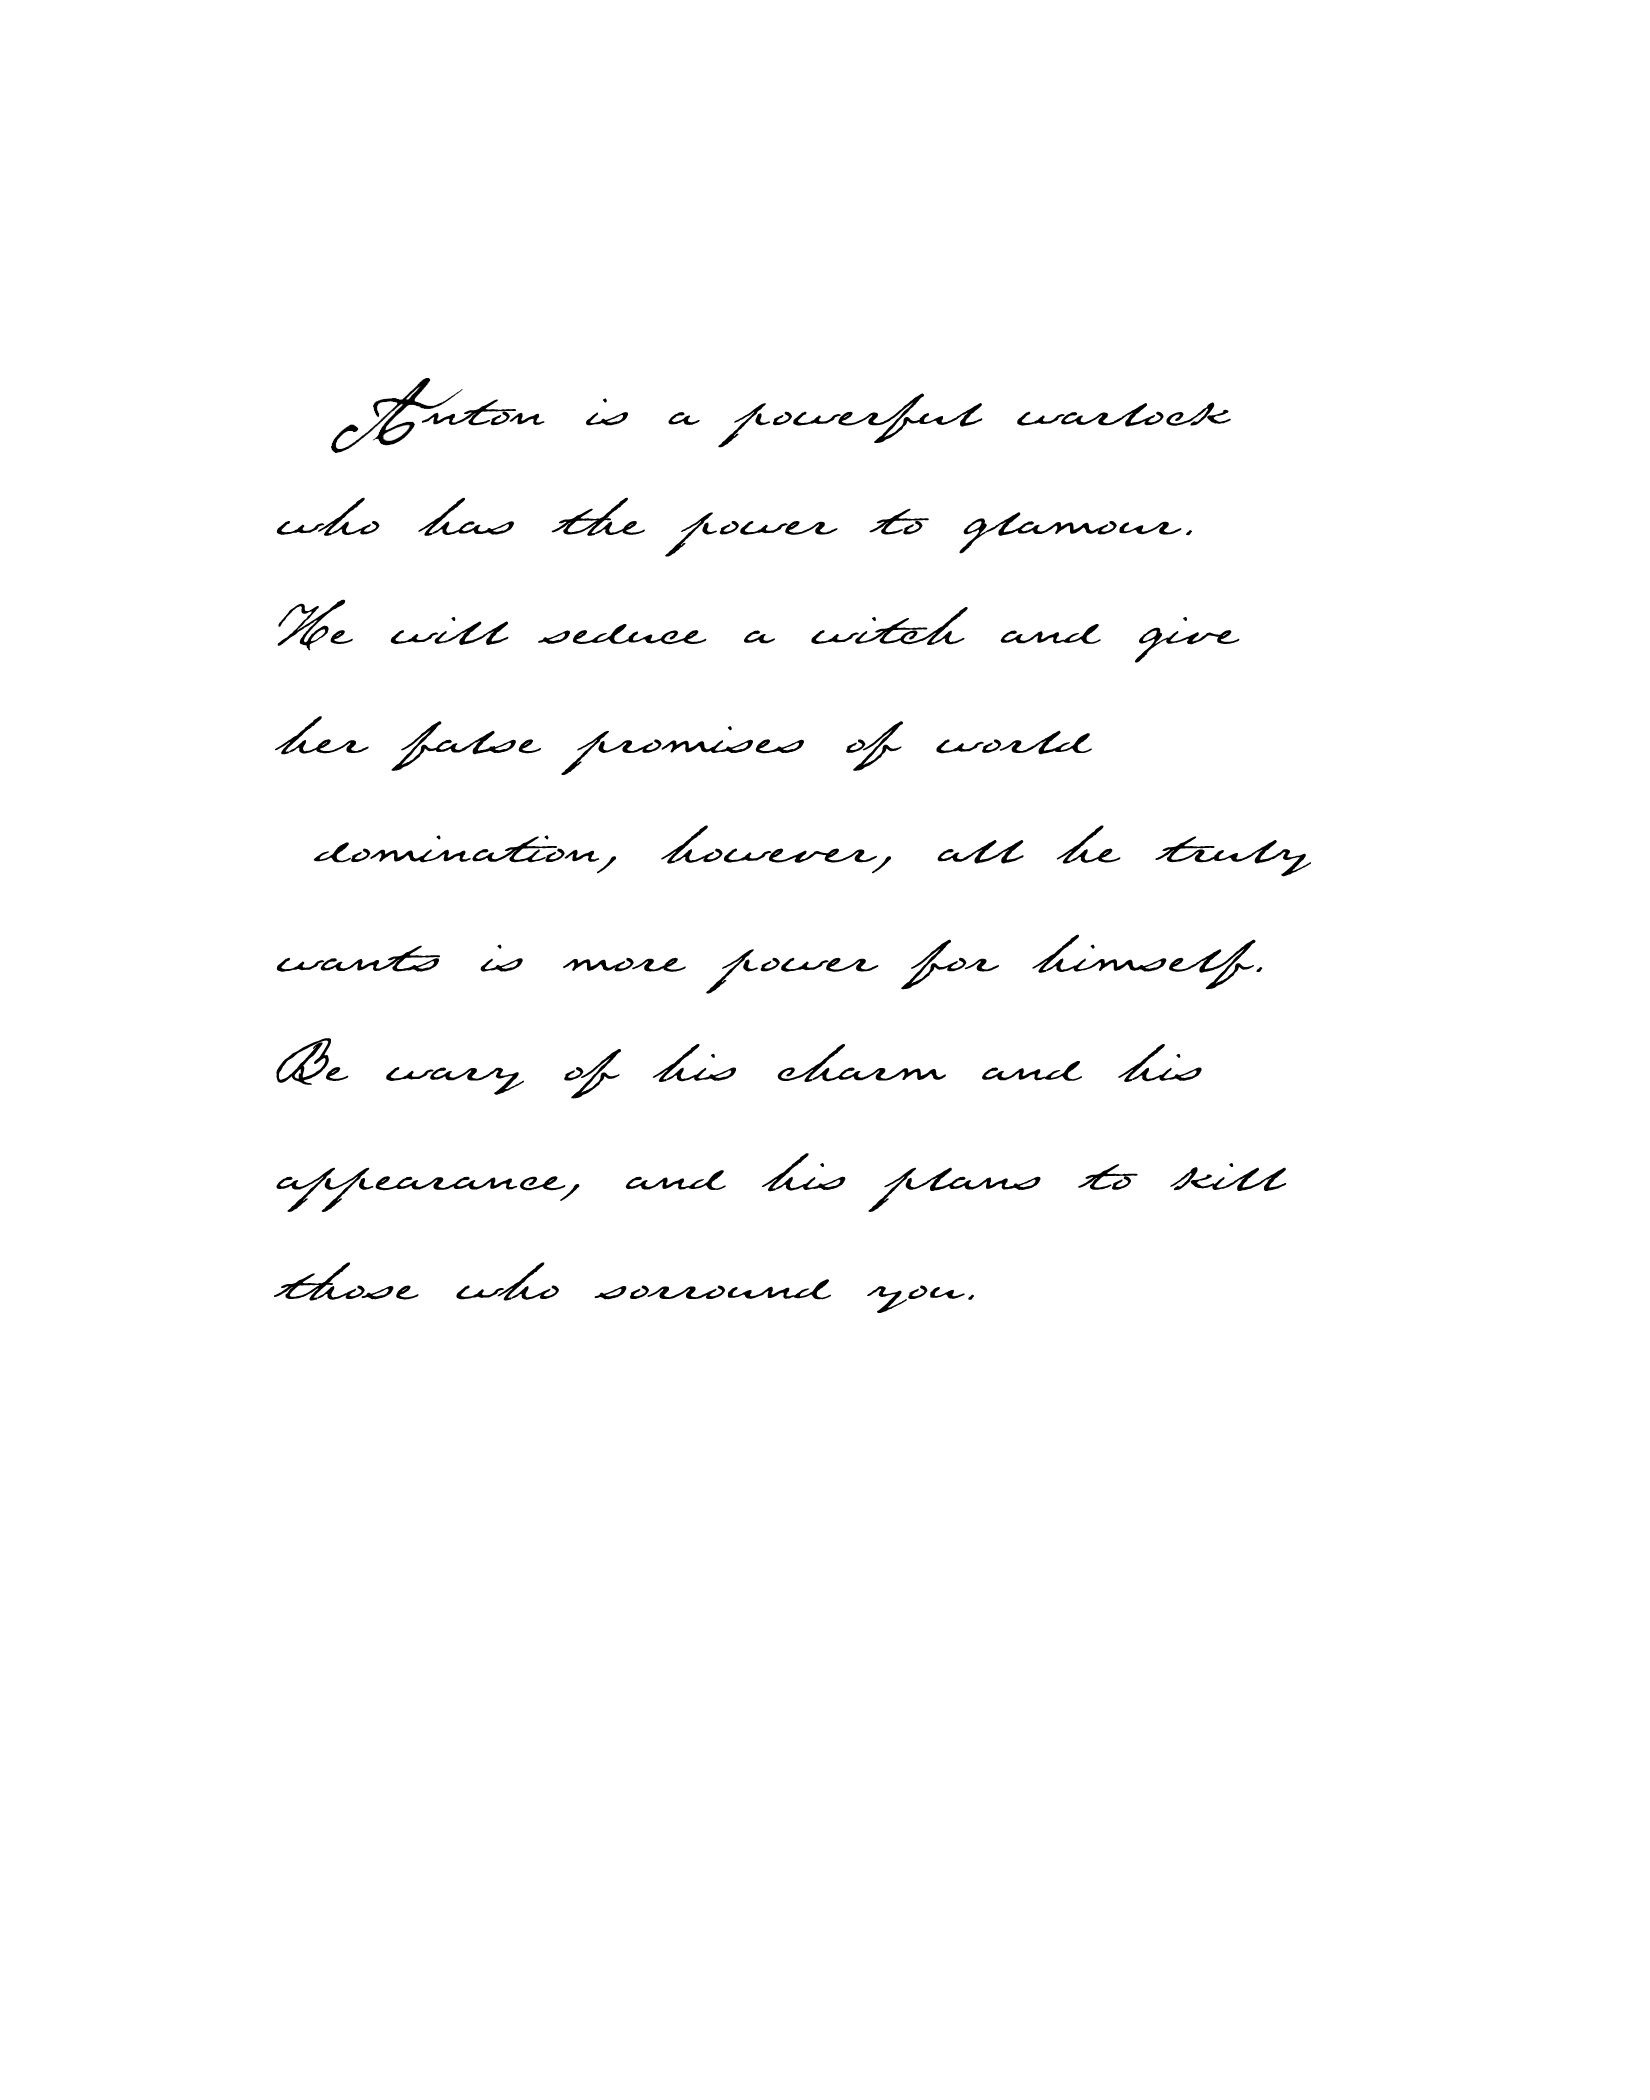 Anton is a powerful warlock
who has the power to glamour.
He will seduce a witch and give
her false promises of world
domination, however, all he truly
wants is more power for himself.
Be wary of his charm and his
appearance, and his plans to kill
those who sorround you.